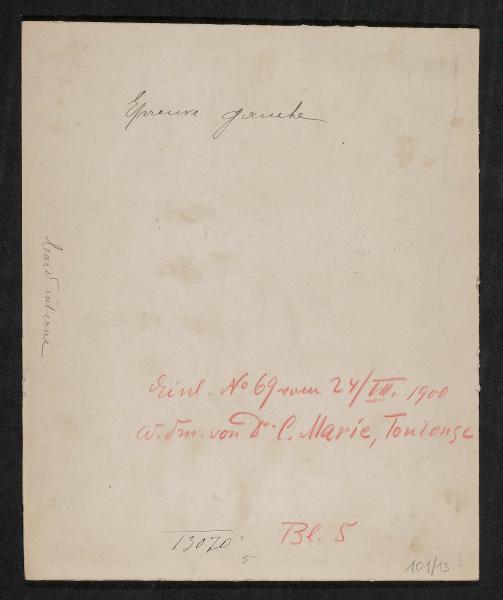 Epreuve gauche
interne
Einl. No 69 vom 24/VII. 1900
W.dm. von Dr. C. Marie, Toulouse
13070
5
Bl. 5
101/13